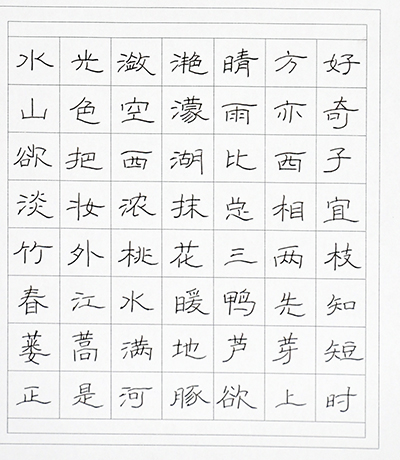 水光潋滟晴方好
山色空濛雨亦奇
欲把西湖比西子
淡妆浓抹总相宜
竹外桃花三两枝
春江水暖鸭先知
蒌蒿满地芦芽短
正是河豚欲上时